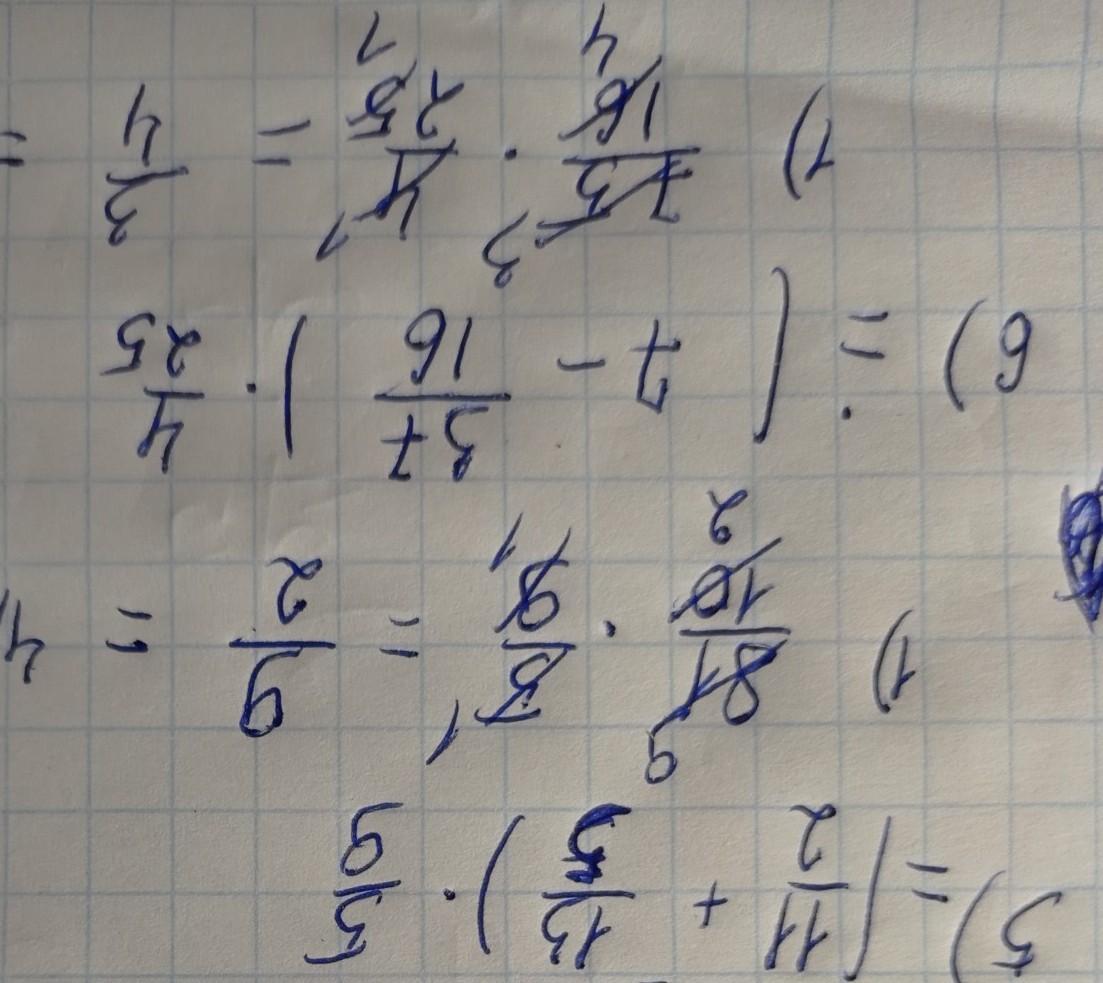 5) = (11/2 + 13/5) · 5/9
1) 81/10 · 5/9 = 9/2 = 4
6) = (7 - 37/16) · 4/25
1) 75/16 · 4/25 = 3/4 =